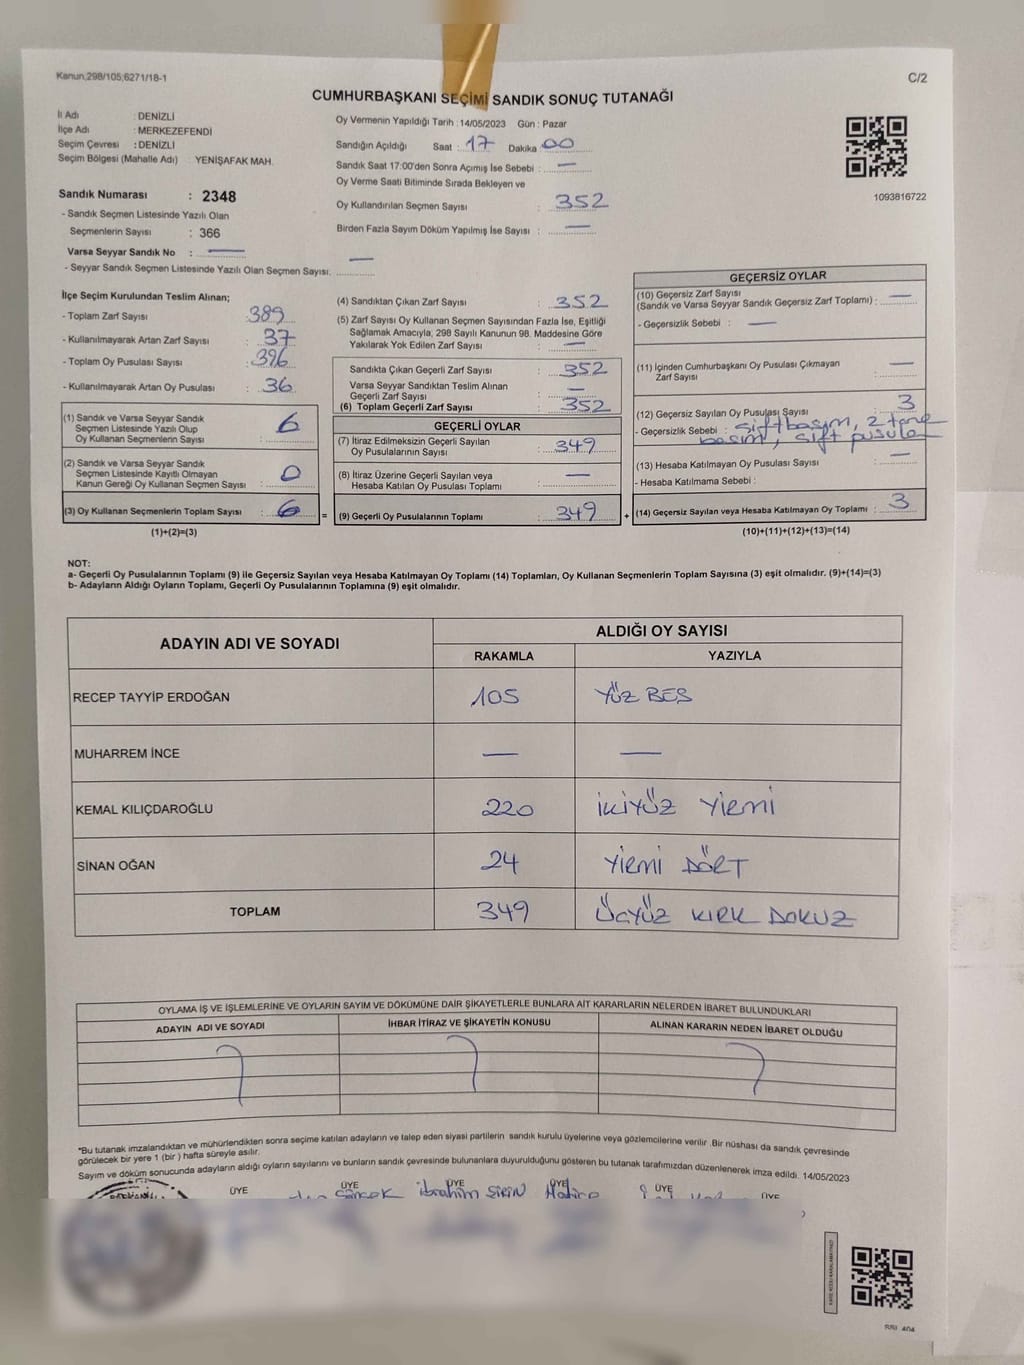 Kanun;298/105;6271/18-1
C/2
CUMHURBAŞKANI SEÇİMİ SANDIK SONUÇ TUTANAĞI
İl Adı : DENİZLİ
İlçe Adı : MERKEZEFENDİ
Seçim Çevresi : DENİZLİ
Seçim Bölgesi (Mahalle Adı) : YENİŞAFAK MAH.
Oy Vermenin Yapıldığı Tarih : 14/05/2023 Gün : Pazar
Sandığın Açıldığı Saat : 17 Dakika : 00
Sandık Saat 17:00'den Sonra Açımış İse Sebebi : —
Oy Verme Saati Bitiminde Sırada Bekleyen ve
Oy Kullandırılan Seçmen Sayısı : 352
Birden Fazla Sayım Döküm Yapılmış İse Sayısı : —
1093816722
Sandık Numarası : 2348
- Sandık Seçmen Listesinde Yazılı Olan
Seçmenlerin Sayısı : 366
Varsa Seyyar Sandık No : —
- Seyyar Sandık Seçmen Listesinde Yazılı Olan Seçmen Sayısı: —
İlçe Seçim Kurulundan Teslim Alınan;
- Toplam Zarf Sayısı : 389
- Kullanılmayarak Artan Zarf Sayısı : 37
- Toplam Oy Pusulası Sayısı : 396
- Kullanılmayarak Artan Oy Pusulası : 36
(1) Sandık ve Varsa Seyyar Sandık
Seçmen Listesinde Yazılı Olup
Oy Kullanan Seçmenlerin Sayısı : 6
(2) Sandık ve Varsa Seyyar Sandık
Seçmen Listesinde Kayıtlı Olmayan
Kanun Gereği Oy Kullanan Seçmen Sayısı : 0
(3) Oy Kullanan Seçmenlerin Toplam Sayısı : 6
(1)+(2)=(3)
(4) Sandıktan Çıkan Zarf Sayısı : 352
(5) Zarf Sayısı Oy Kullanan Seçmen Sayısından Fazla İse, Eşitliği
Sağlamak Amacıyla; 298 Sayılı Kanunun 98. Maddesine Göre
Yakılarak Yok Edilen Zarf Sayısı : —
Sandıkta Çıkan Geçerli Zarf Sayısı : 352
Varsa Seyyar Sandıktan Teslim Alınan
Geçerli Zarf Sayısı : —
(6) Toplam Geçerli Zarf Sayısı : 352
GEÇERLİ OYLAR
(7) İtiraz Edilmeksizin Geçerli Sayılan
Oy Pusulalarının Sayısı : 349
(8) İtiraz Üzerine Geçerli Sayılan veya
Hesaba Katılan Oy Pusulası Toplamı : —
= (9) Geçerli Oy Pusulalarının Toplamı : 349 +
GEÇERSİZ OYLAR
(10) Geçersiz Zarf Sayısı
(Sandık ve Varsa Seyyar Sandık Geçersiz Zarf Toplamı) : —
- Geçersizlik Sebebi : —
(11) İçinden Cumhurbaşkanı Oy Pusulası Çıkmayan
Zarf Sayısı : —
(12) Geçersiz Sayılan Oy Pusulası Sayısı : 3
- Geçersizlik Sebebi : Sift basım, 2 tane
basım, sift pusula
(13) Hesaba Katılmayan Oy Pusulası Sayısı : —
- Hesaba Katılmama Sebebi :
(14) Geçersiz Sayılan veya Hesaba Katılmayan Oy Toplamı : 3
(10)+(11)+(12)+(13)=(14)
NOT:
a- Geçerli Oy Pusulalarının Toplamı (9) ile Geçersiz Sayılan veya Hesaba Katılmayan Oy Toplamı (14) Toplamları, Oy Kullanan Seçmenlerin Toplam Sayısına (3) eşit olmalıdır. (9)+(14)=(3)
b- Adayların Aldığı Oyların Toplamı, Geçerli Oy Pusulalarının Toplamına (9) eşit olmalıdır.
ADAYIN ADI VE SOYADI
ALDIĞI OY SAYISI
RAKAMLA YAZIYLA
RECEP TAYYİP ERDOĞAN 105 YÜZ BES
MUHARREM İNCE — —
KEMAL KILIÇDAROĞLU 220 İKİYÜZ YİRMİ
SİNAN OĞAN 24 YİRMİ DÖRT
TOPLAM 349 ÜÇYÜZ KIRK DOKUZ
OYLAMA İŞ VE İŞLEMLERİNE VE OYLARIN SAYIM VE DÖKÜMÜNE DAİR ŞİKAYETLERLE BUNLARA AİT KARARLARIN NELERDEN İBARET BULUNDUKLARI
ADAYIN ADI VE SOYADI İHBAR İTİRAZ VE ŞİKAYETİN KONUSU ALINAN KARARIN NEDEN İBARET OLDUĞU
*Bu tutanak imzalandıktan ve mühürlendikten sonra seçime katılan adayların ve talep eden siyasi partilerin sandık kurulu üyelerine veya gözlemcilerine verilir .Bir nüshası da sandık çevresinde
görülecek bir yere 1 (bir ) hafta süreyle asılır.
Sayım ve döküm sonucunda adayların aldığı oyların sayılarını ve bunların sandık çevresinde bulunanlara duyurulduğunu gösteren bu tutanak tarafımızdan düzenlenerek imza edildi. 14/05/2023
ÜYE ÜYE ÜYE ÜYE ÜYE ÜYE
İbrahim ŞİRİN